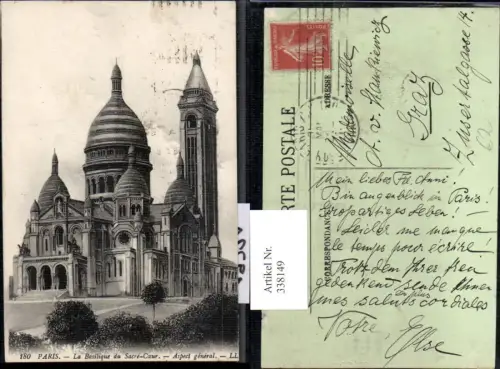 180 PARIS. — La Basilique du Sacré-Cœur. — Aspect général. — LL
Artikel Nr.
338149
CARTE POSTALE
CORRESPONDANCE
ADRESSE
10
Mademoiselle
A. v. Stankiewicz
Graz
Zusertalgasse 14.
Mein liebes Frl. Anni.
Bin augenblick in Paris.
Grossartiges Leben! —
Leider me manque
le temps pour écrire!
Trotzdem Ihrer
gedenkend sende Ihnen
mes saluts cordiales
Votre Else